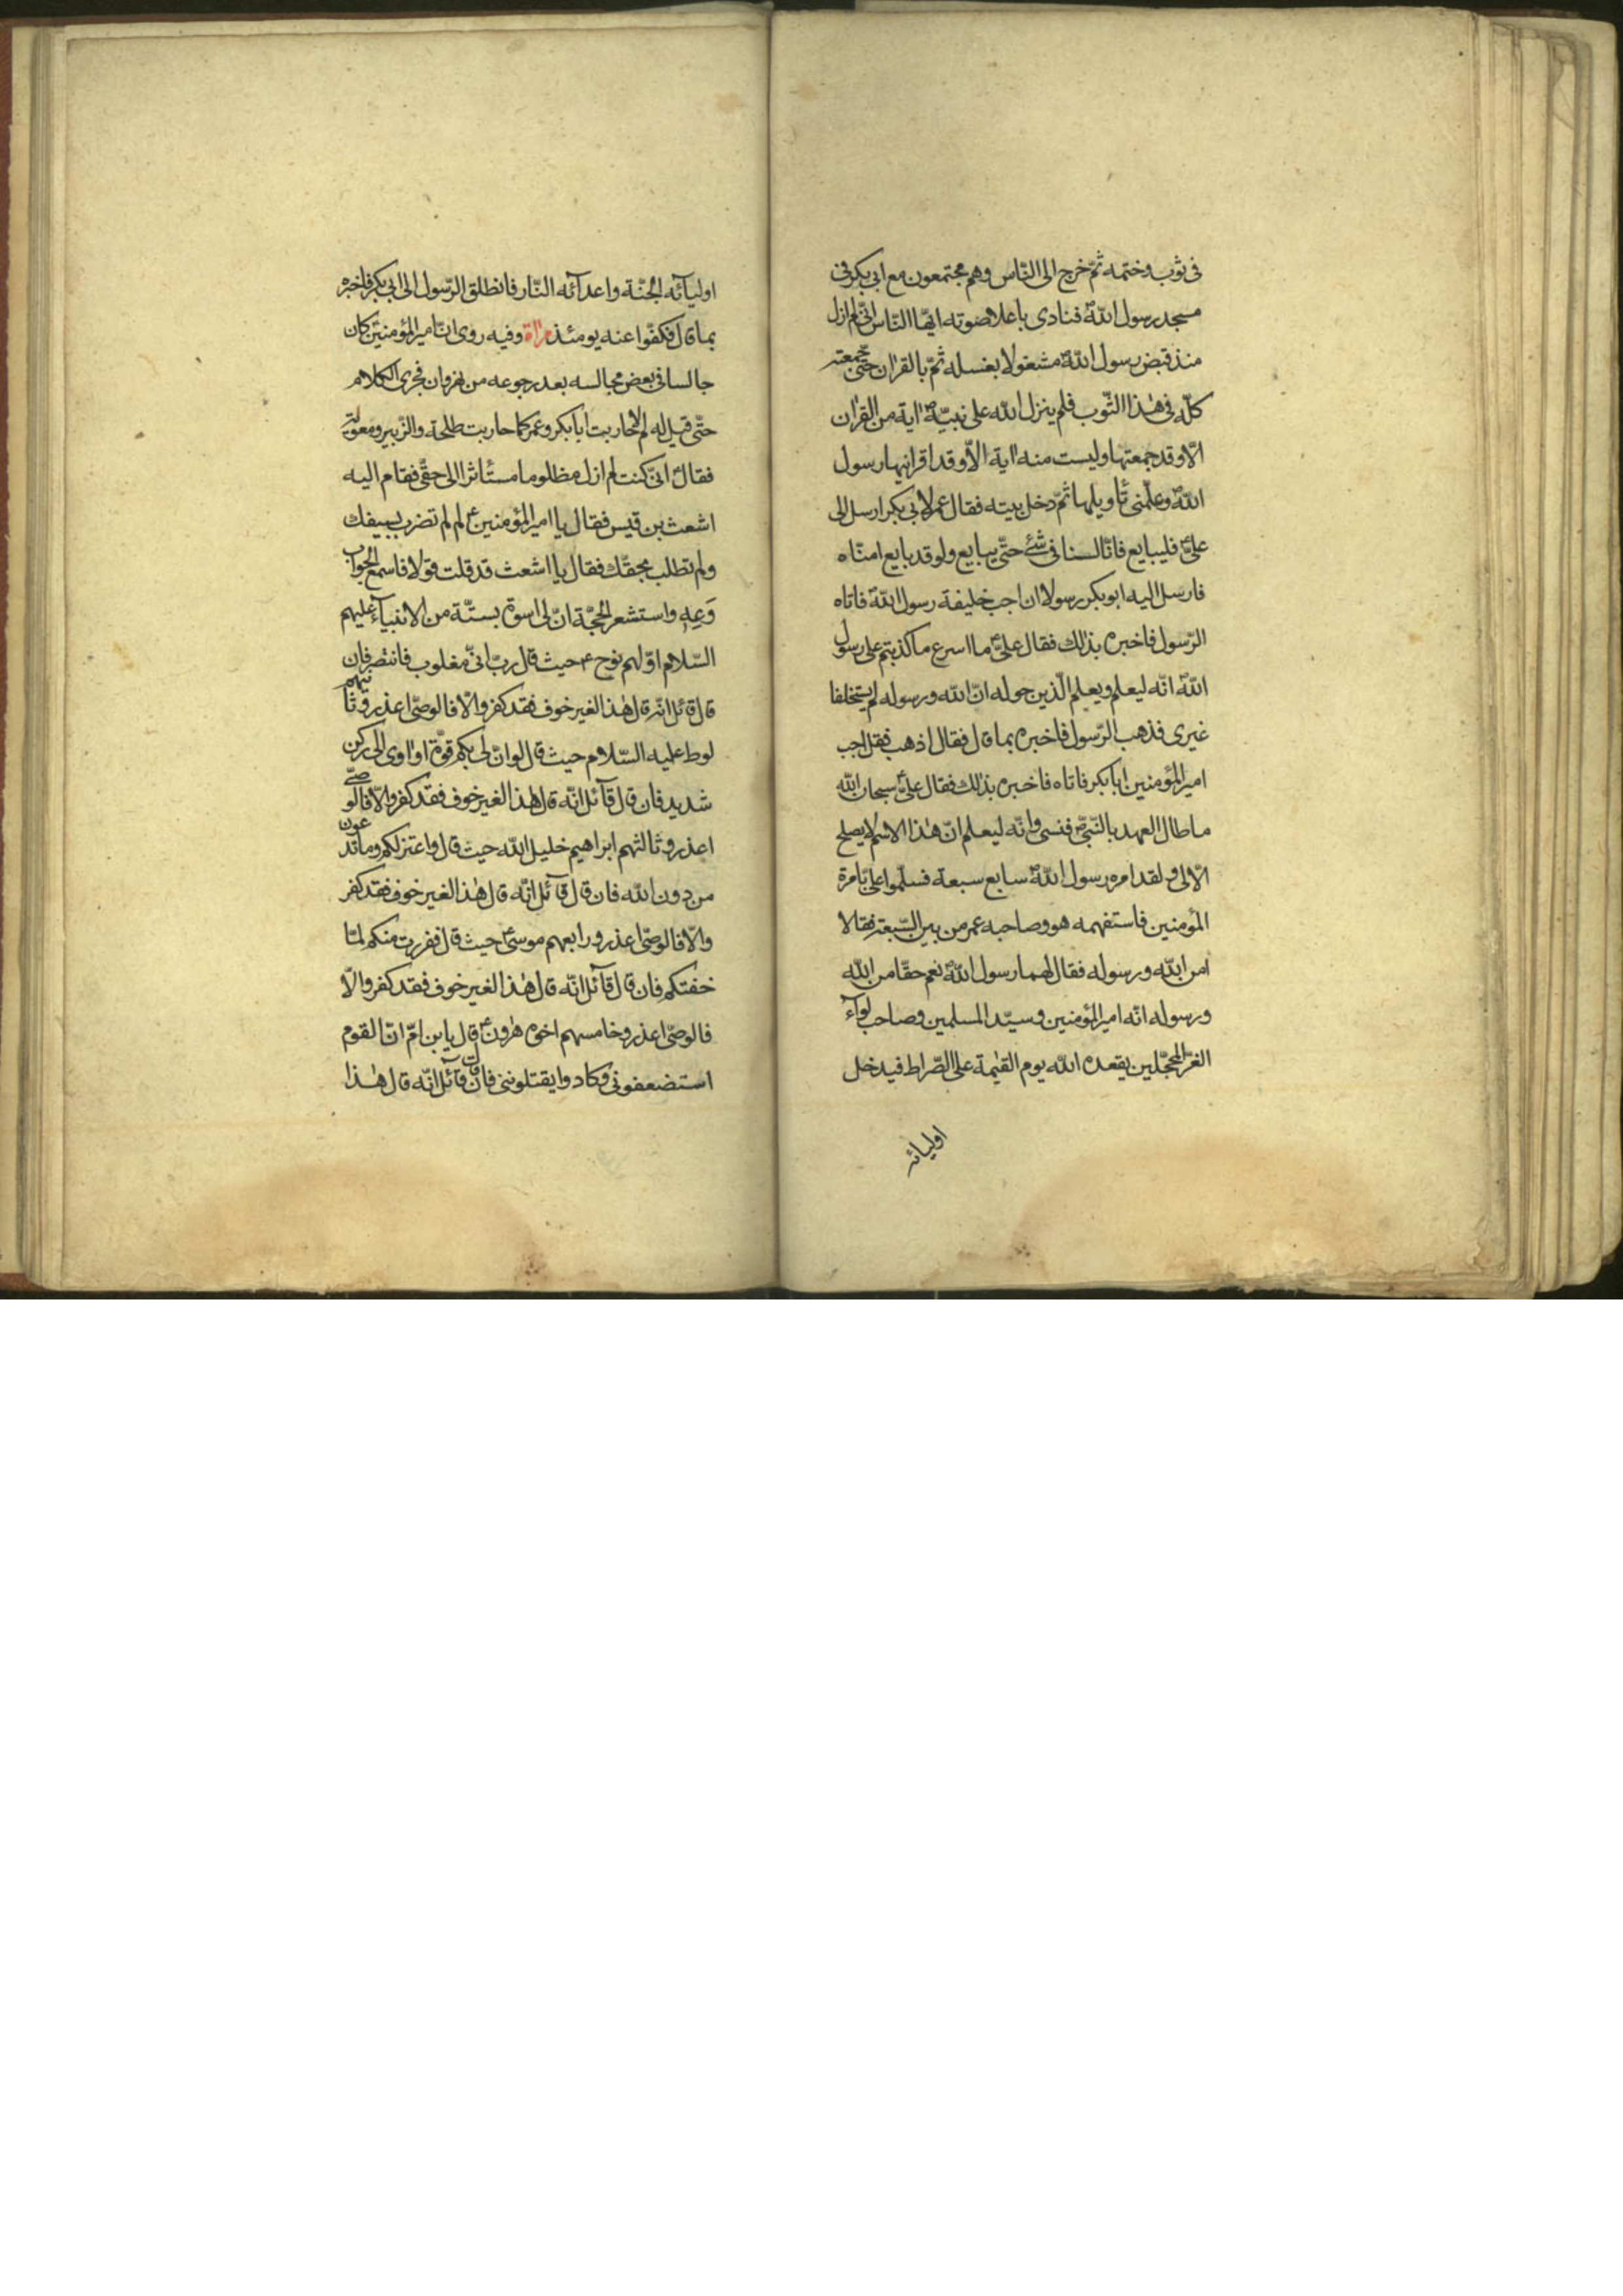 فى ثوب وختمه ثمّ خرج الى النّاس وهم مجتمعون مع ابى بكر فى
مسجد رسول اللهّ فنادى باعلا صوته ايّها النّاس انّى لم ازل
منذ قبض رسول اللهّ مشغولا بغسله ثمّ بالقران حتّى جمعته
كلّه فى هٰذا الثّوب فلم ينزل الله على نبيّه ص اية من القران
الّا وقد جمعتها وليست منه اية الّا وقد اقرانيها رسول
اللهّ وعلّمنى تأويلها ثمّ دخل بيته فقال عمر لابى بكر ارسل الى
علىّ فليبايع فانّا لسنا فى شئ حتّى يبايع ولو قد بايع امنّاه
فارسل اليه ابو بكر رسولا ان اجب خليفة رسول اللهّ فاتاه
الرّسول فاخبره بذلك فقال علىّ ما اسرع ما كذبتم على رسول
اللهّ انّه ليعلم ويعلم الّذين حوله انّ الله ورسوله لم يستخلفا
غيرى فذهب الرّسول فاخبره بما قال فقال اذهب فقل اجب
امير المؤمنين ابا بكر فاتاه فاخبره بذلك فقال علىّ سبحان الله
ما طال العهد بالنّبىّ فنسى وانّه ليعلم انّ هٰذا الاسم لا يصلح
الّا لى ولقد امره رسول اللهّ سابع سبعة فسلّموا علىّ بامرة
المؤمنين فاستفهمه هو وصاحبه عمر من بين السّبعة فقالا
امن الله ورسوله فقال لهما رسول اللهّ نعم حقّا من الله
ورسوله انّه امير المؤمنين وسيّد المسلمين وصاحب لوآء
الغرّ المحجّلين يقعده الله يوم القيٰمة على الصّراط فيدخل
اوليائه
اوليآئه الجنّة واعدآئه النّار فانطلق الرّسول الى ابى بكر فاخبره
بما قال فكفّوا عنه يومئذ مراة وفيه روى انّ امير المؤمنين كان
جالسا فى بعض مجالسه بعد رجوعه من نهروان فجرى الكلام
حتّى قيل له لم لا حاربت ابا بكر وعمر كما حاربت طلحة والزّبير ومعوية
فقال ع انّى كنت لم ازل مظلوما مستأثرا الى حقّى فقام اليه
اشعث بن قيس فقال يا امير المؤمنين ع لم لم تضرب بسيفك
ولم تطلب بحقّك فقال يا اشعث قد قلت قولا فاسمع الجواب
وَعِه واستشعر الحجّة انّ لى اسوة بستّة من الانبياء عليهم
السّلام اوّلهم نوح ع حيث قال ربّ انّى مغلوب فانتصر فان
قال قائل انّه قال هٰذا لغير خوف فقد كفر والّا فالوصّى اعذر وثانيهم
لوط عليه السّلام حيث قال لو انّ لى بكم قوّة او اوى الى ركن
شديد فان قال قآئل انّه قال هٰذا لغير خوف فقد كفر والّا فالوصّى
اعذر وثالثهم ابراهيم خليل الله حيث قال واعتزلكم وما تدعون
من دون الله فان قال قآئل انّه قال هٰذا لغير خوف فقد كفر
والّا فالوصّى اعذر ورابعهم موسى ع حيث قال ففررت منكم لمّا
خفتكم فان قال قآئل انّه قال هٰذا لغير خوف فقد كفر والّا
فالوصّى اعذر وخامسهم اخوه هٰرون ع قال يابن امّ انّ القوم
استضعفونى وكادوا يقتلوننى فان قال قآئل انّه قال هٰذا